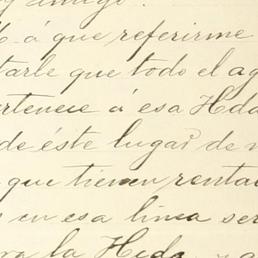 y amigo.
M. á que referirme
tarle que todo el ag
ertenece á esa Hda
de éste lugar de
que tienen renta
en esa linea ser
ra la Hda. y